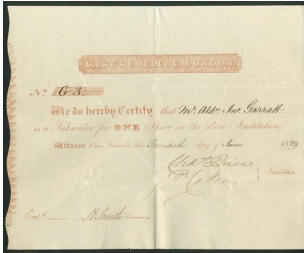 KING'S COLLEGE, LONDON.
No. G 3
We do hereby Certify that Mr. Aldn. Jno. Garratt
is a Subscriber for ONE Share in the above Institution,
Witness Our Hands this Twentieth day of June 1829
Trustees
Entd. H Smith